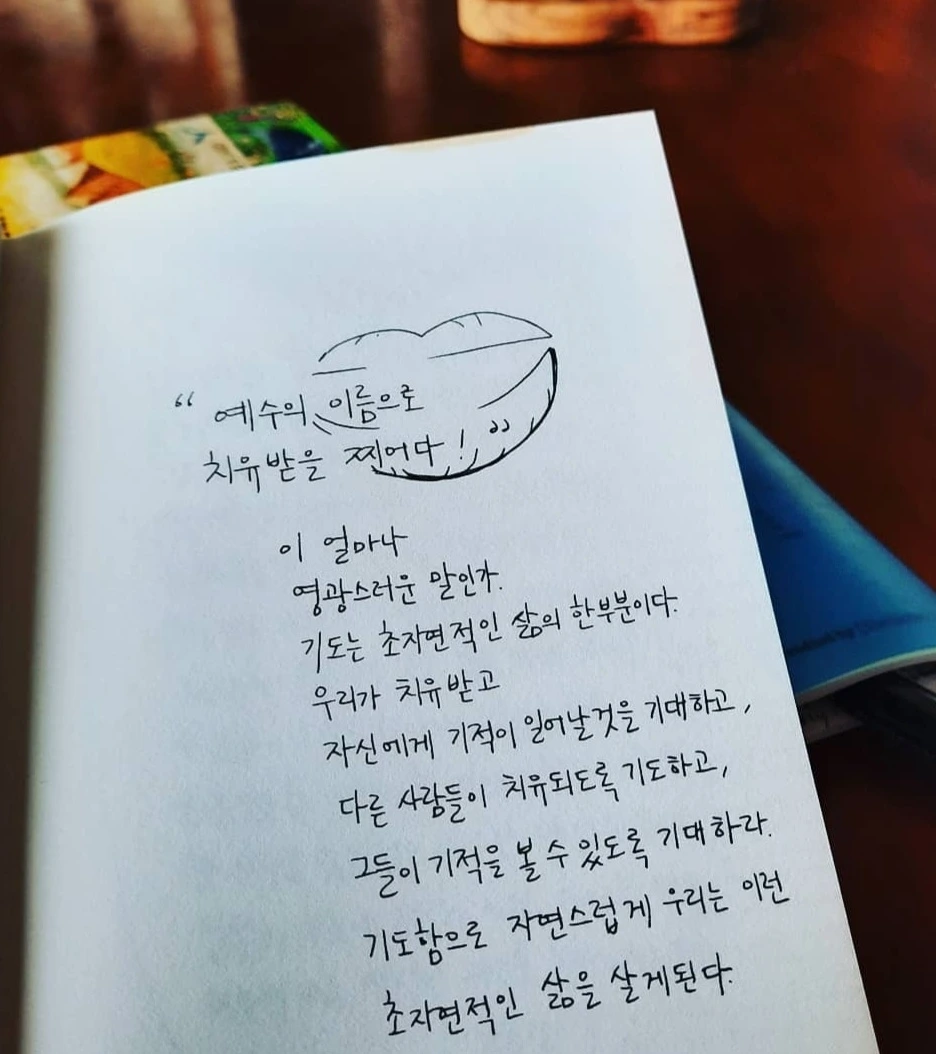 “ 예수의 이름으로
치유받을 찌어다 ! ”
이 얼마나
영광스러운 말인가.
기도는 초자연적인 삶의 한부분이다.
우리가 치유받고
자신에게 기적이 일어날것을 기대하고,
다른 사람들이 치유되도록 기도하고,
그들이 기적을 볼 수 있도록 기대하라.
기도함으로 자연스럽게 우리는 이런
초자연적인 삶을 살게된다.